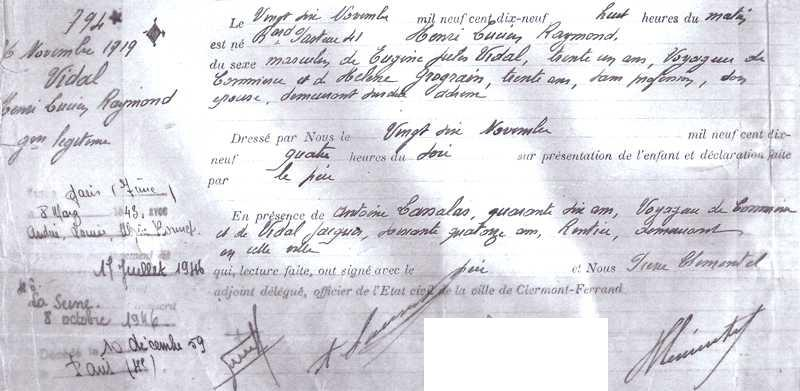 794
26 Novembre 1919
Vidal
Henri Lucien Raymond
légitime
Paris (
8 Mars 1943, avec
André, Louis,
17 Juillet 1946
La Seine
8 octobre 1946
Décédé le 10 décembre 59
Paris
Le Vingt six Novembre mil neuf cent dix-neuf huit heures du matin
est né Bard Pasteur 41 Henri Lucien Raymond,
du sexe masculin, de Eugène Jules Vidal, trente un ans, Voyageur de
Commerce et de Hélène Grograin, trente ans, sans profession, son
épouse, demeurant susdite adresse
Dressé par Nous le Vingt six Novembre mil neuf cent dix-
neuf quatre heures du soir sur présentation de l'enfant et déclaration faite
par le père
En présence de Antoine Lassalas, quarante six ans, Voyageur de Commerce
et de Vidal Jacques, soixante quatorze ans, Rentier, demeurant
en cette ville
qui, lecture faite, ont signé avec le père et Nous Clémentel
adjoint délégué, officier de l'Etat civil de la ville de Clermont-Ferrand.